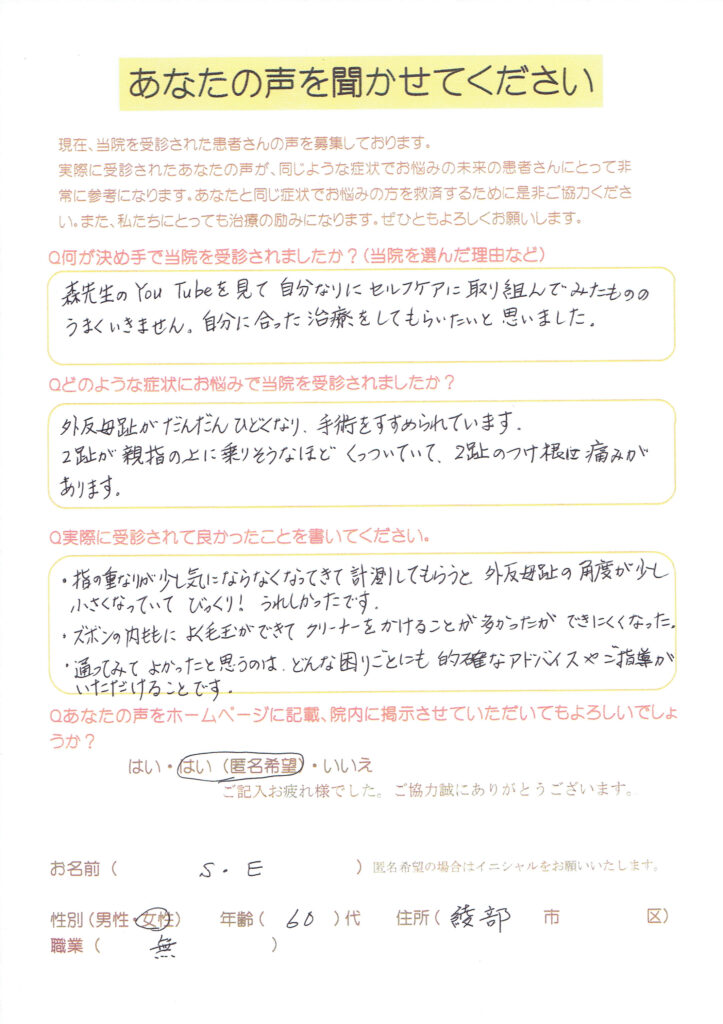 あなたの声を聞かせてください
現在、当院を受診された患者さんの声を募集しております。
実際に受診されたあなたの声が、同じような症状でお悩みの未来の患者さんにとって非
常に参考になります。あなたと同じ症状でお悩みの方を救済するために是非ご協力くださ
い。また、私たちにとっても治療の励みになります。ぜひともよろしくお願いします。
Q何が決め手で当院を受診されましたか？（当院を選んだ理由など）
森先生のYou Tubeを見て自分なりにセルフケアに取り組んでみたものの
うまくいきません。自分に合った治療をしてもらいたいと思いました。
Qどのような症状にお悩みで当院を受診されましたか？
外反母趾がだんだんひどくなり、手術をすすめられています。
2趾が親指の上に乗りそうなほどくっついていて、2趾のつけ根は痛みが
あります。
Q実際に受診されて良かったことを書いてください。
・指の重なりが少し気にならなくなってきて計測してもらうと外反母趾の角度が少し
小さくなっていてびっくり！うれしかったです。
・ズボンの内ももによく毛玉ができてクリーナーをかけることが多かったができにくくなった。
・通ってみてよかったと思うのは、どんな困りごとにも的確なアドバイスやご指導が
いただけることです。
Qあなたの声をホームページに記載、院内に掲示させていただいてもよろしいでしょ
うか？
はい・はい（匿名希望）・いいえ
ご記入お疲れ様でした。ご協力誠にありがとうございます。
お名前（ S.E ）匿名希望の場合はイニシャルをお願いいたします。
性別（男性・女性） 年齢（ 60 ）代 住所（ 綾部 市 区）
職業（ 無 ）